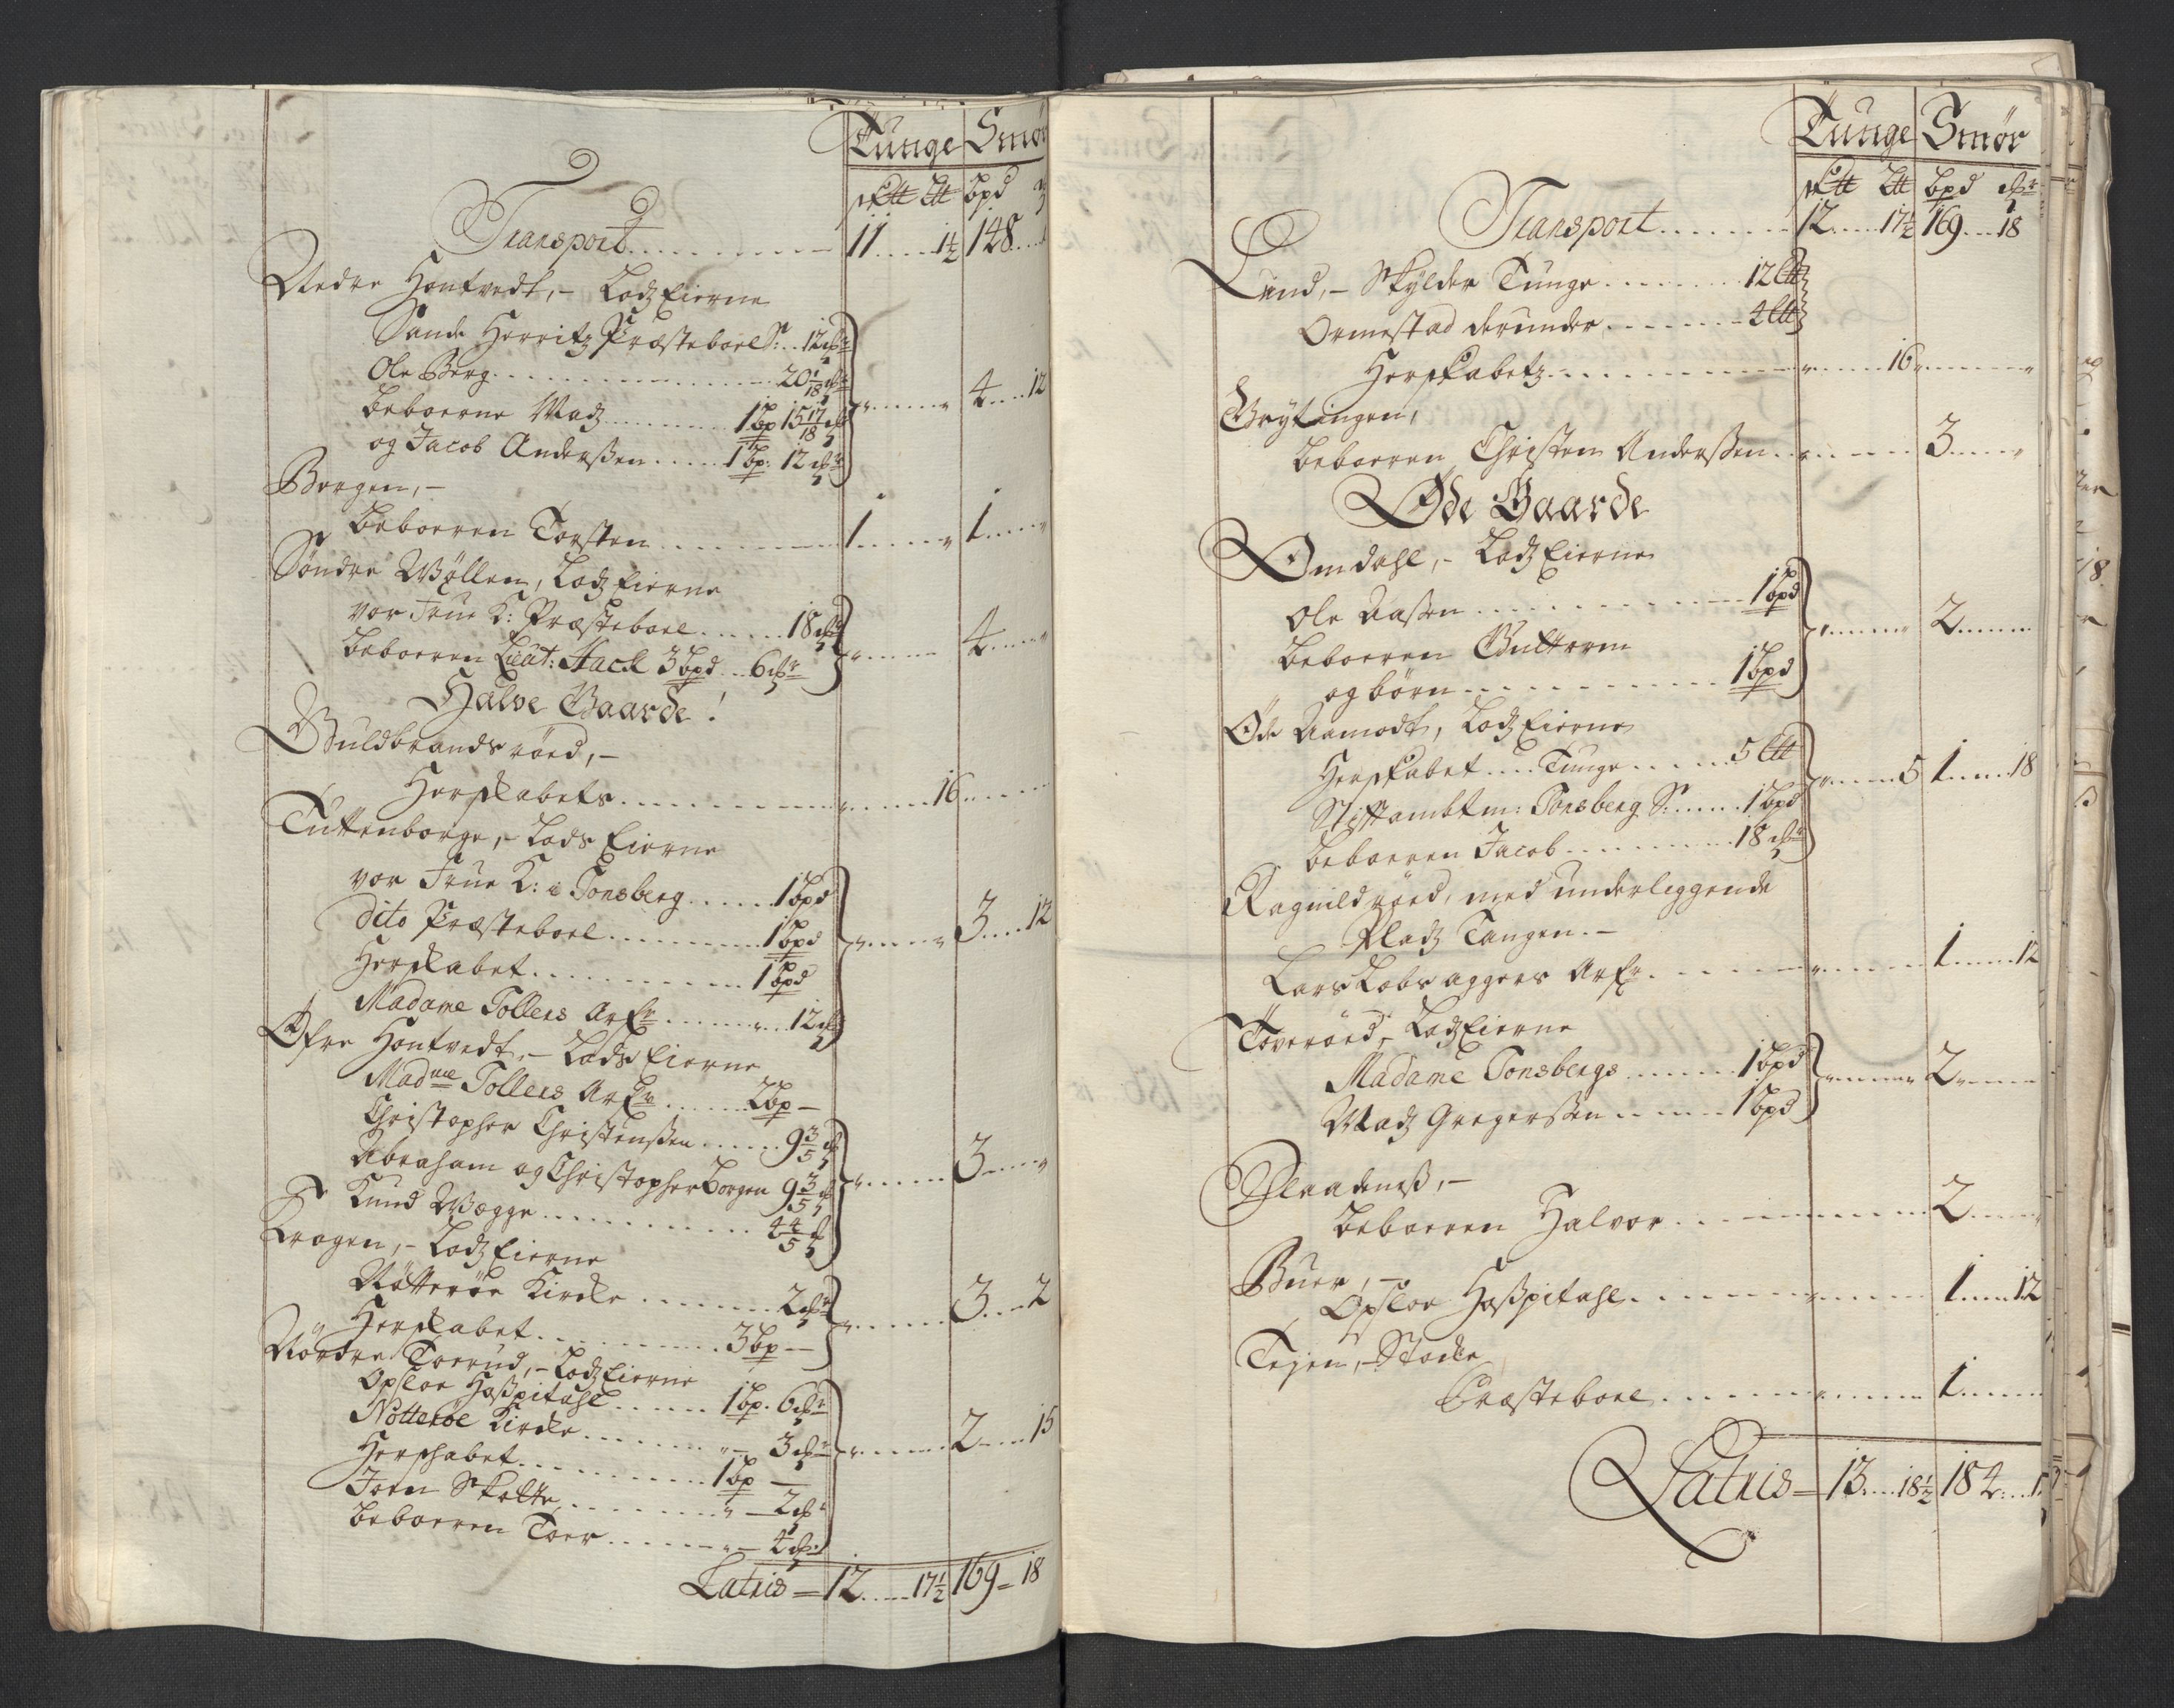 Tunge Smør
Transport 11 1½ 148
Nedre Hontvedt, – Lodz Eierne
Sande Herritz Præsteboel S: 12
Ole Berg 20 1/18
beboerne Madz 1 bp 15 17/18
og Jacob Anderßen 1 bp: 12
4 12
Borgen, –
beboeren Torsten 1 1
Søndre Wøllen, Lodz Eierne
vor Frue K: Præsteboel 18
beboeren Lieut: Stack 3 bpd 6
4
Halve Gaarde!
Guldbrandsrøed, –
Herskabets 16
Tuttenborge, – Lods Eierne
vor Frue K: i Tonsberg 1 bpd
dito Præsteboel 1 bpd
3 12
Herskabet 1 bpd
Madame Tollers Arf: 12
Øfre Hontvedt, – Lods Eierne
Madme Tollers Arf: 2 bp –
Christopher Christenßen 9 3/5
Abraham og Christopher Borgen 9 3/5
3
Knud Wegge 4 4/5
Kragen, – Lodz Eierne
Nøtterøe Kircke 2
Herskabet 3 bp –
3 2
Nordre Toerud, – Lodz Eierne
Opsloe Hoßpitahl 1 bp. 6
Nøtterøe Kircke 3
Herskabet 1 bp –
2 15
Joen Skotte 2
beboeren Toer 4
Latris = 12 17½ 169 = 18
Tunge Smør
bpd
Transport 12 17½ 169 18
Lund, – Skylder Tunge 12 Ltt
Ormestad derunder 4 Ltt
Herskabetz 16
Grytingen,
beboeren Christen Anderßen 3
Øde Gaarde
Omdahl, – Lodz Eierne
Ole Aaßen 1 bpd
beboeren Guttorm
og børn 1 bpd
2
Øde Aamodt, Lodz Eierne
Herskabet Tunge 5 Ltt
Stiftambtm: Tonsberg S: 1 bpd
beboeren Jacob 18
5 1 18
Ragnildrøed, med underliggende
Pladz Tangen. –
Lars Lobsaggers Arf: 1 12
Toverøed, Lodz Eierne
Madame Tonsbergs 1 bpd
Madz Gregerßen 1 bpd
2
beboeren Halvor 2
Buer, –
Opsloe Hoßpitahl 1 12
Tejen, – Stocke
Præsteboel 1
Latris = 13 18½ 182